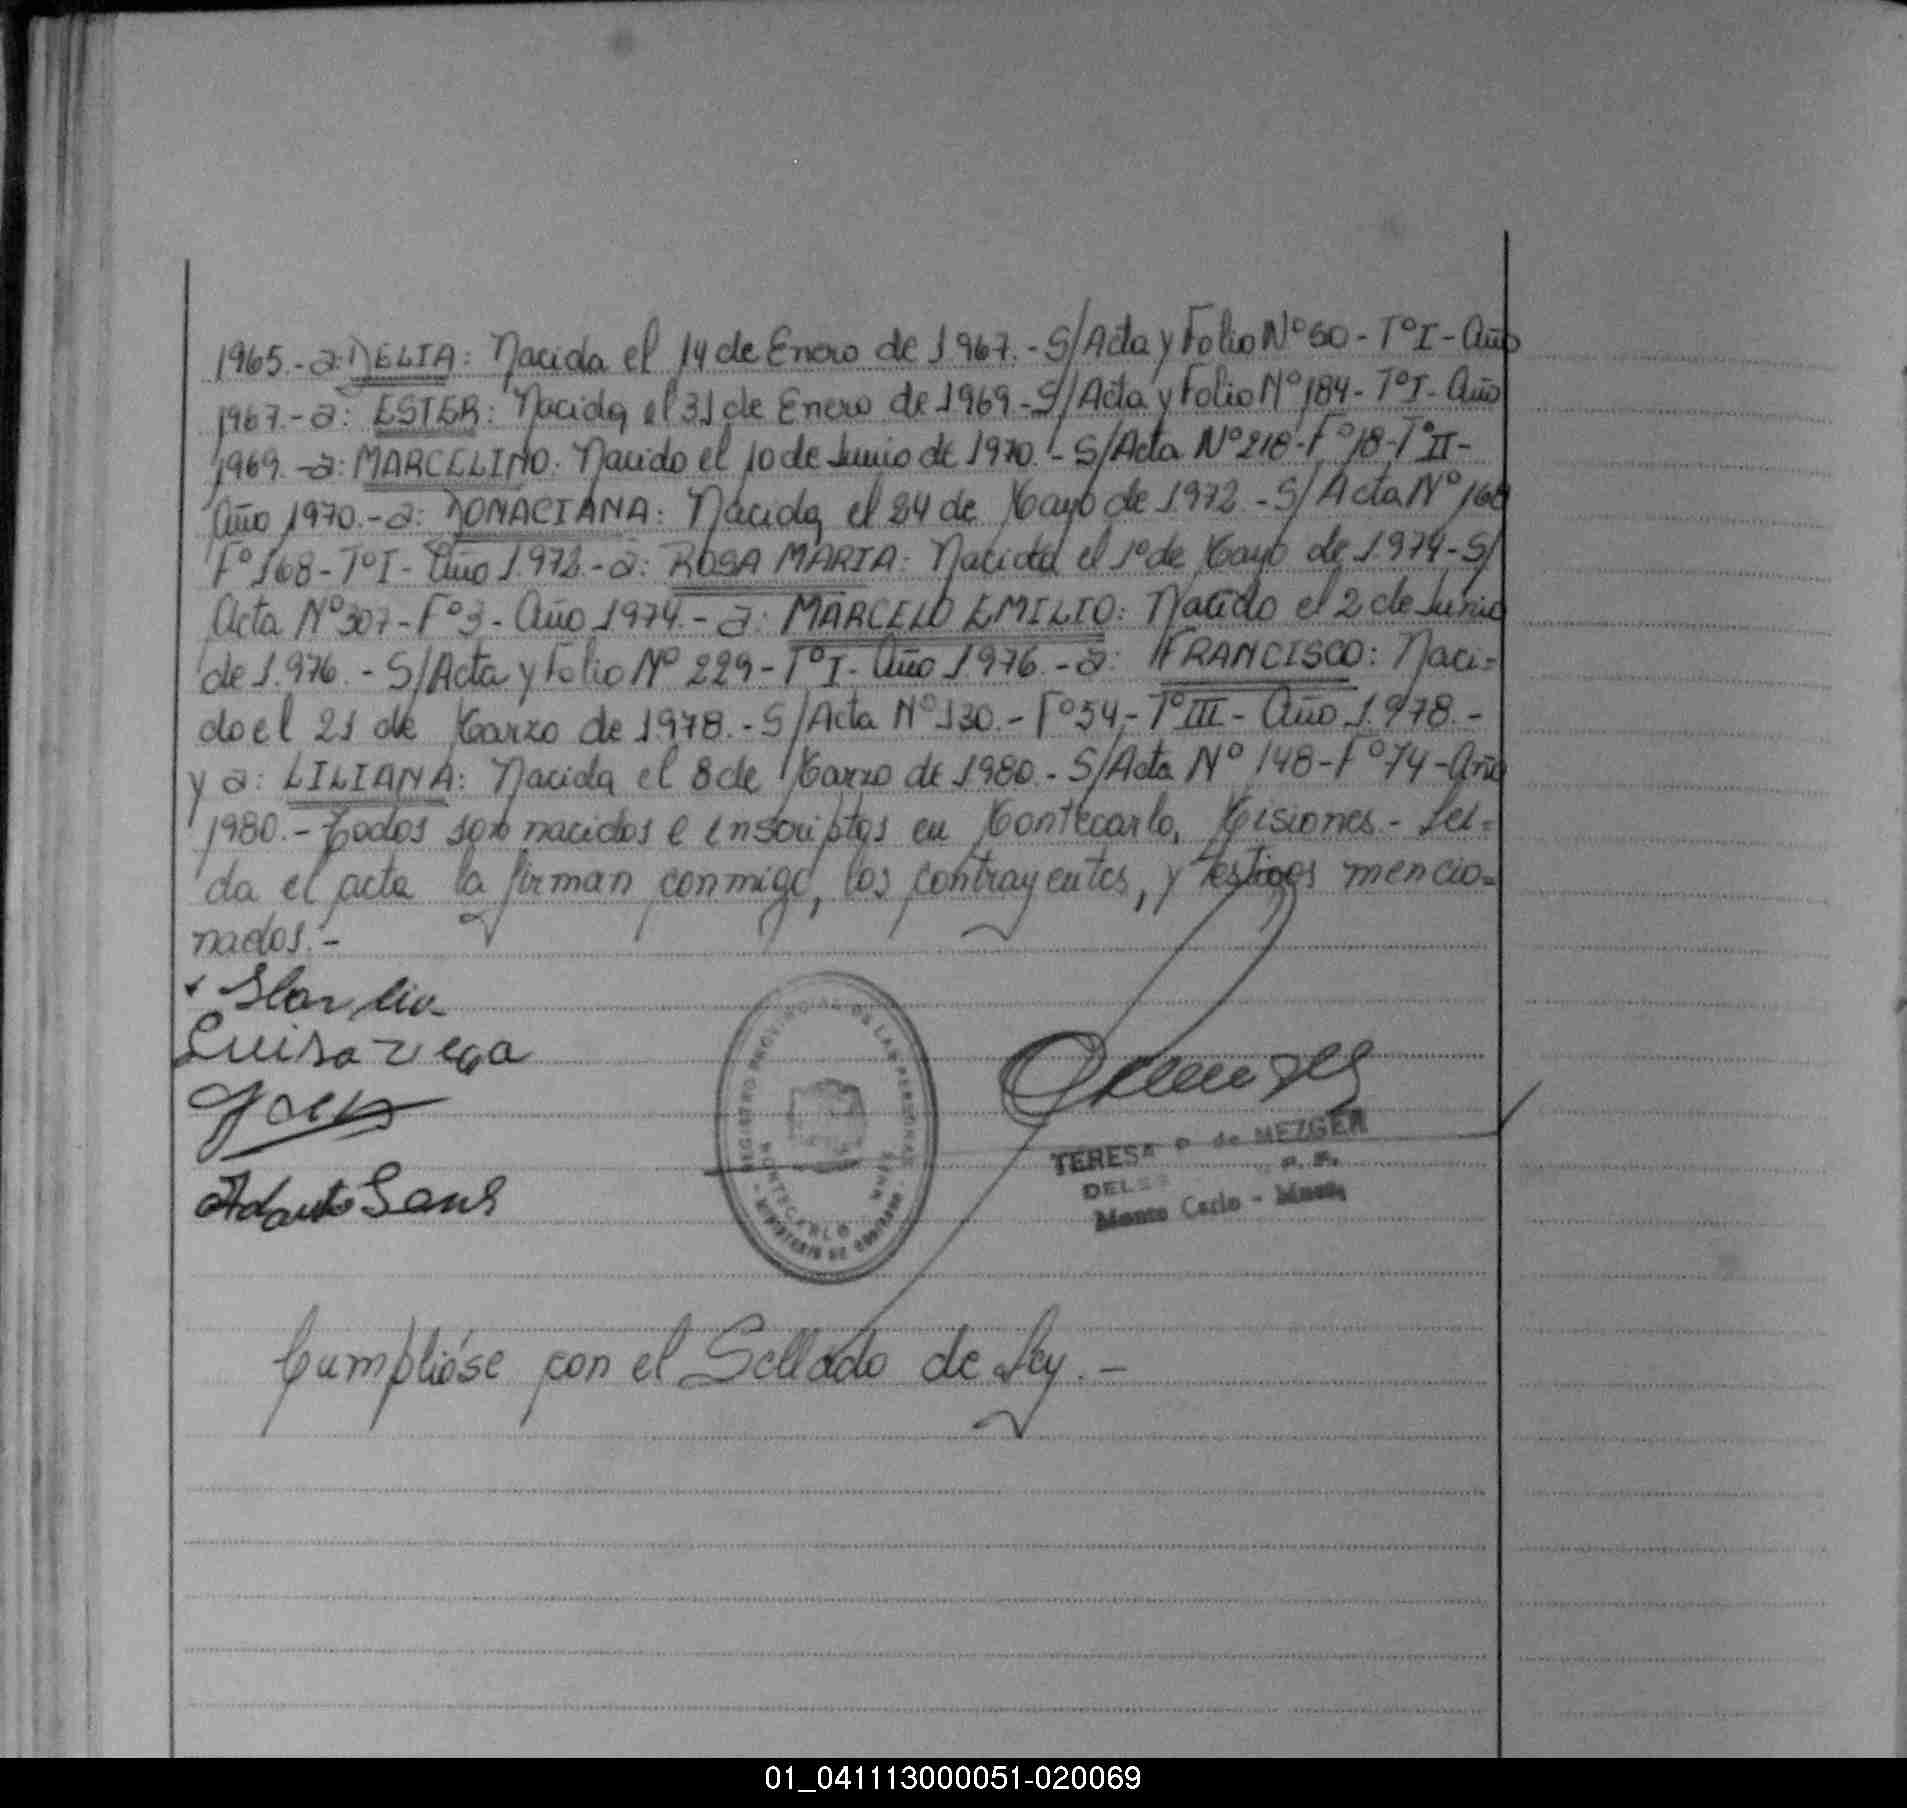 1965.- a: DELIA: Nacida el 14 de Enero de 1967.- S/Acta y Folio Nº 50 - Tº I - Año
1967.- a: ESTER: Nacida el 31 de Enero de 1969.- S/Acta y Folio Nº 184 - Tº I - Año
1969.- a: MARCELINO: Nacido el 10 de Junio de 1970.- S/Acta Nº 218 - Fº 18 - Tº II -
Año 1970.- a: DONACIANA: Nacida el 24 de Mayo de 1972 - S/Acta Nº 168
Fº 168 - Tº I - Año 1.972.- a: ROSA MARIA: Nacida el 1º de Mayo de 1.974 - S/
Acta Nº 307 - Fº 3 - Año 1974.- a: MARCELO EMILIO: Nacido el 2 de Junio
de 1.976.- S/Acta y Folio Nº 229 - Tº I - Año 1.976.- a: FRANCISCO: Naci=
do el 21 de Marzo de 1978.- S/Acta Nº 130.- Fº 54 - Tº III - Año 1.978.-
y a: LILIANA: Nacida el 8 de Marzo de 1980.- S/Acta Nº 148 - Fº 74 - Año
1980.- Todos son nacidos e inscriptos en Montecarlo, Misiones.- Leí=
da el acta la firman conmigo, los contrayentes, y testigos mencio=
nados.-
Luisa vega
REGISTRO PROVINCIAL DE LAS PERSONAS
MONTECARLO
MINISTERIO DE GOBIERNO
TERESA P. de MEZGER
Monte Carlo - Mnes.
Cumplióse con el Sellado de Ley.-
01_041113000051-020069